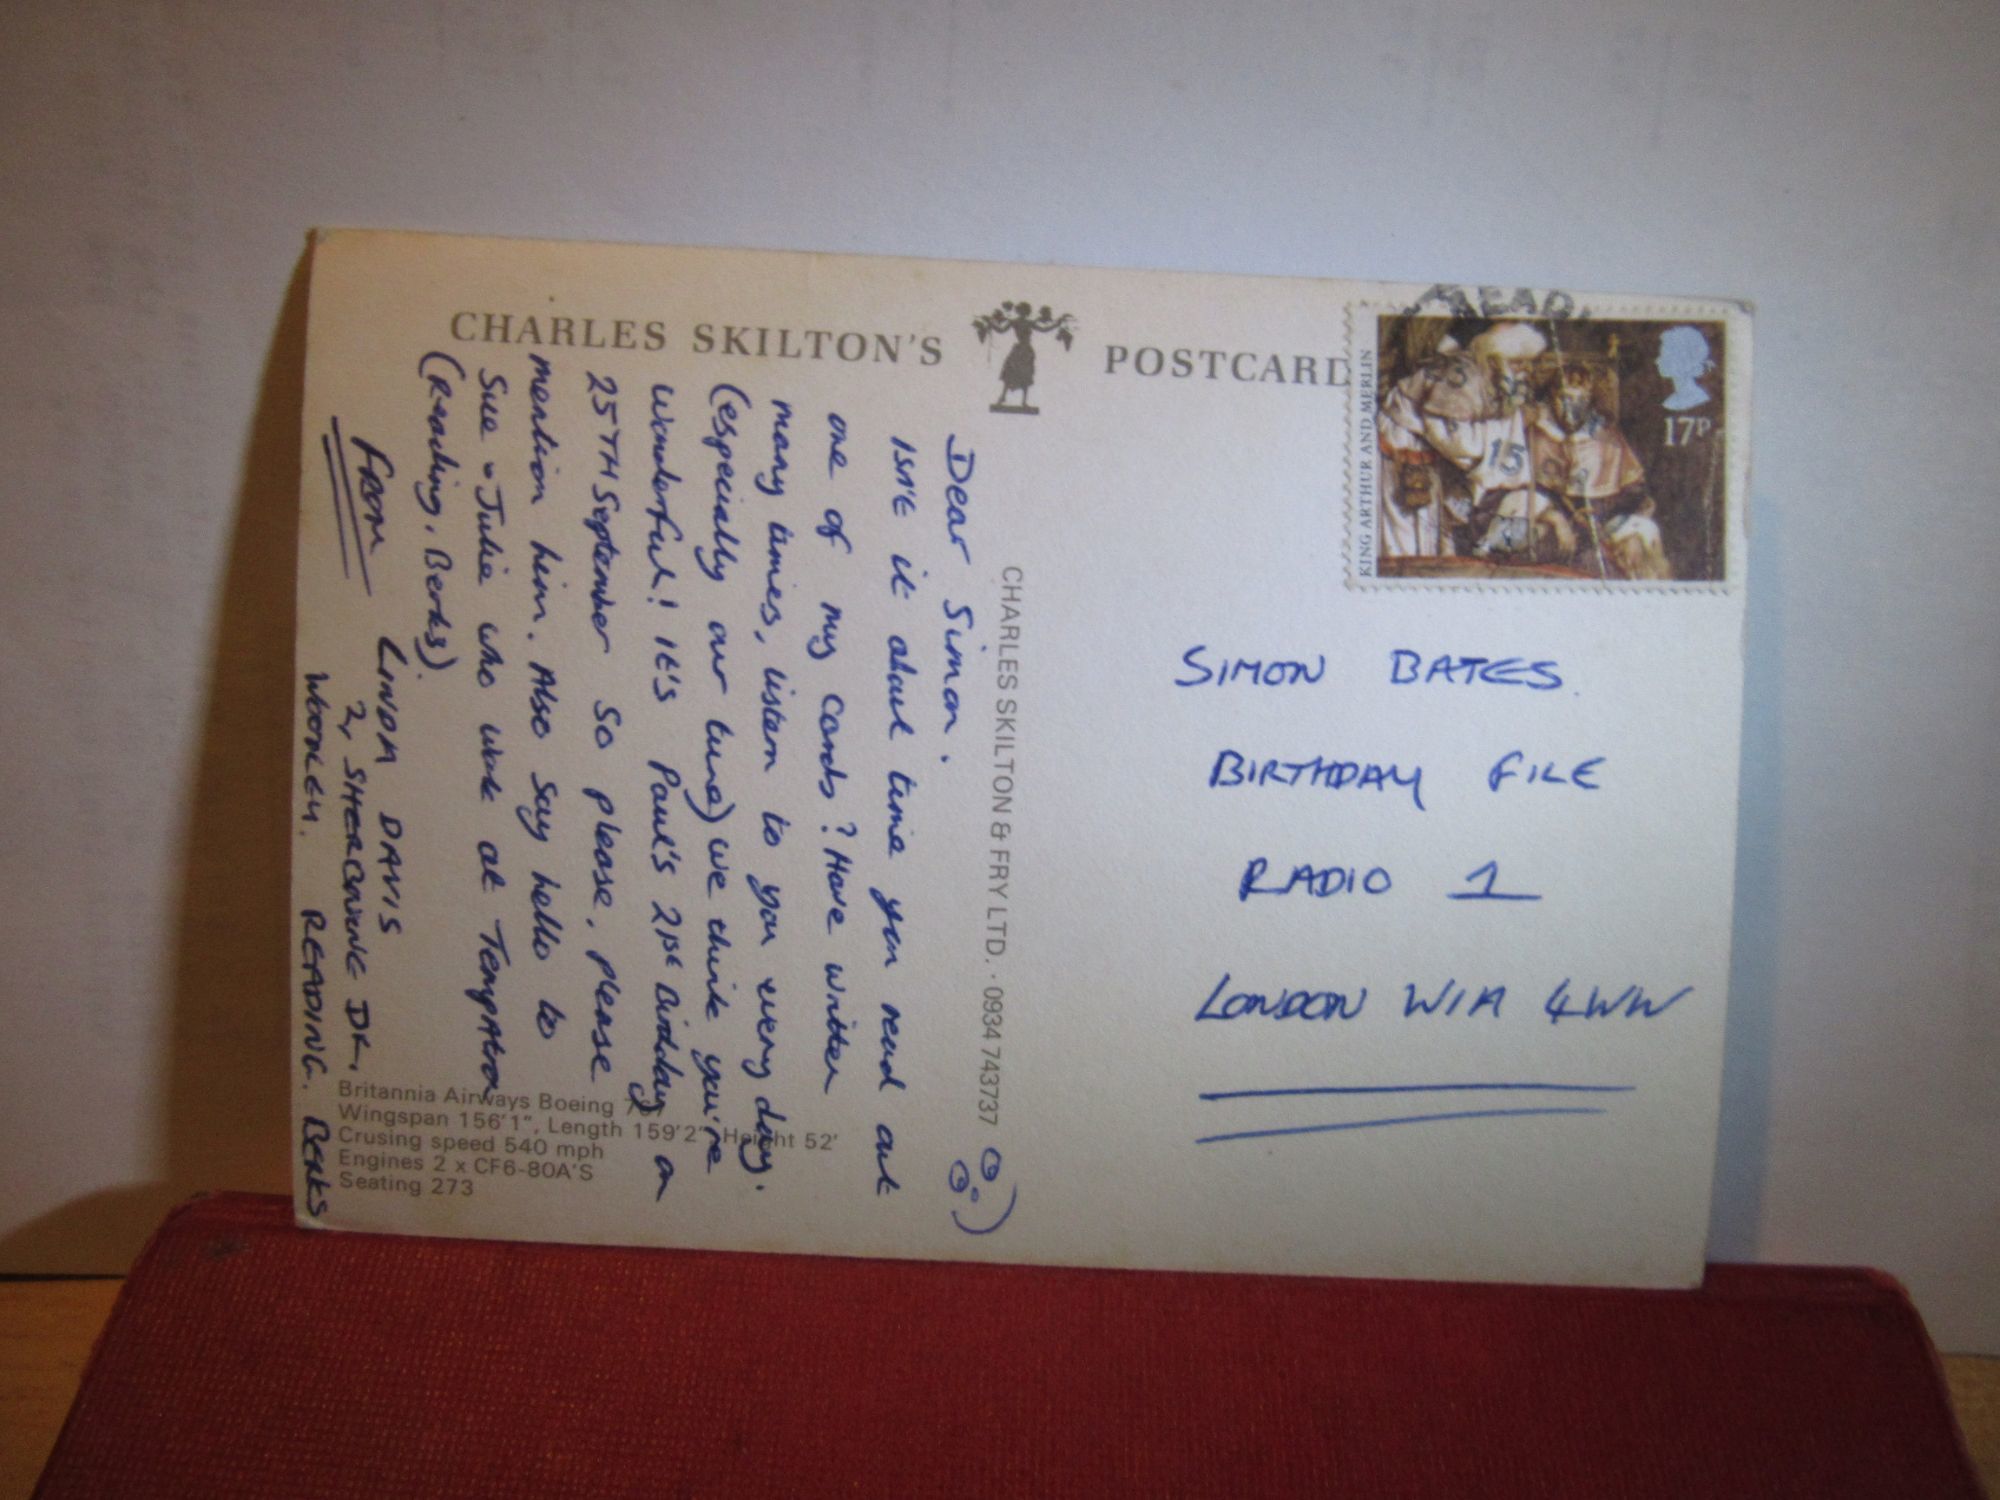 CHARLES SKILTON'S POSTCARD
KING ARTHUR AND MERLIN
17P
READI
15
Dear Simon.
Isn't it about time you read out
one of my cards? Have written
many times, listen to you every day.
(especially our tune) we think you're
wonderful! It's Paul's 21st Birthday on
25TH September so please, please
mention him. Also say hello to
Sue & Julie who work at Tempatron
(Reading, Berks).
FROM LINDA DAVIS
2, SHERBOURNE DR,
WOODLEY. READING. BERKS
CHARLES SKILTON & FRY LTD. · 0934 743737
SIMON BATES.
BIRTHDAY FILE
RADIO 1
LONDON W1A 4WW
Britannia Airways Boeing
Wingspan 156'1", Length 159'2", Height 52'
Crusing speed 540 mph
Engines 2 x CF6-80A'S
Seating 273